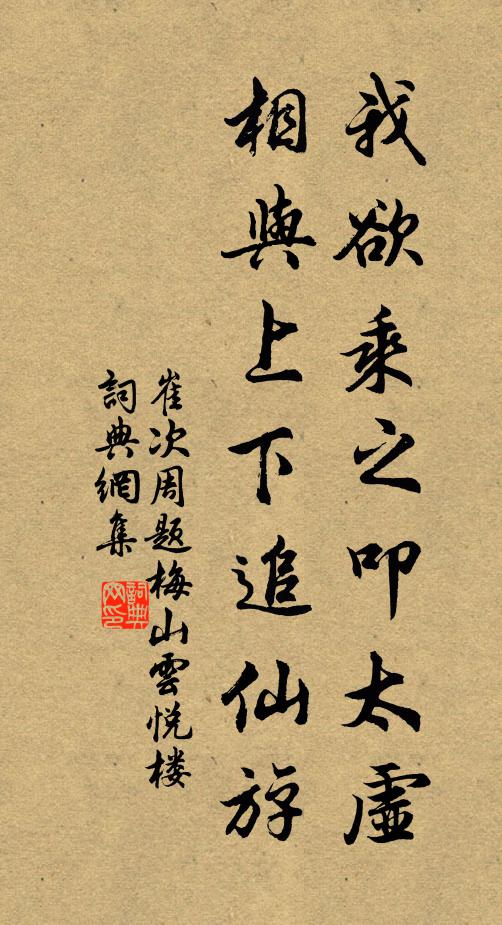 我欲乘之叩太虛
相與上下追仙游
崔次周题梅山雲悦楼
詞典網集
詞典
网印